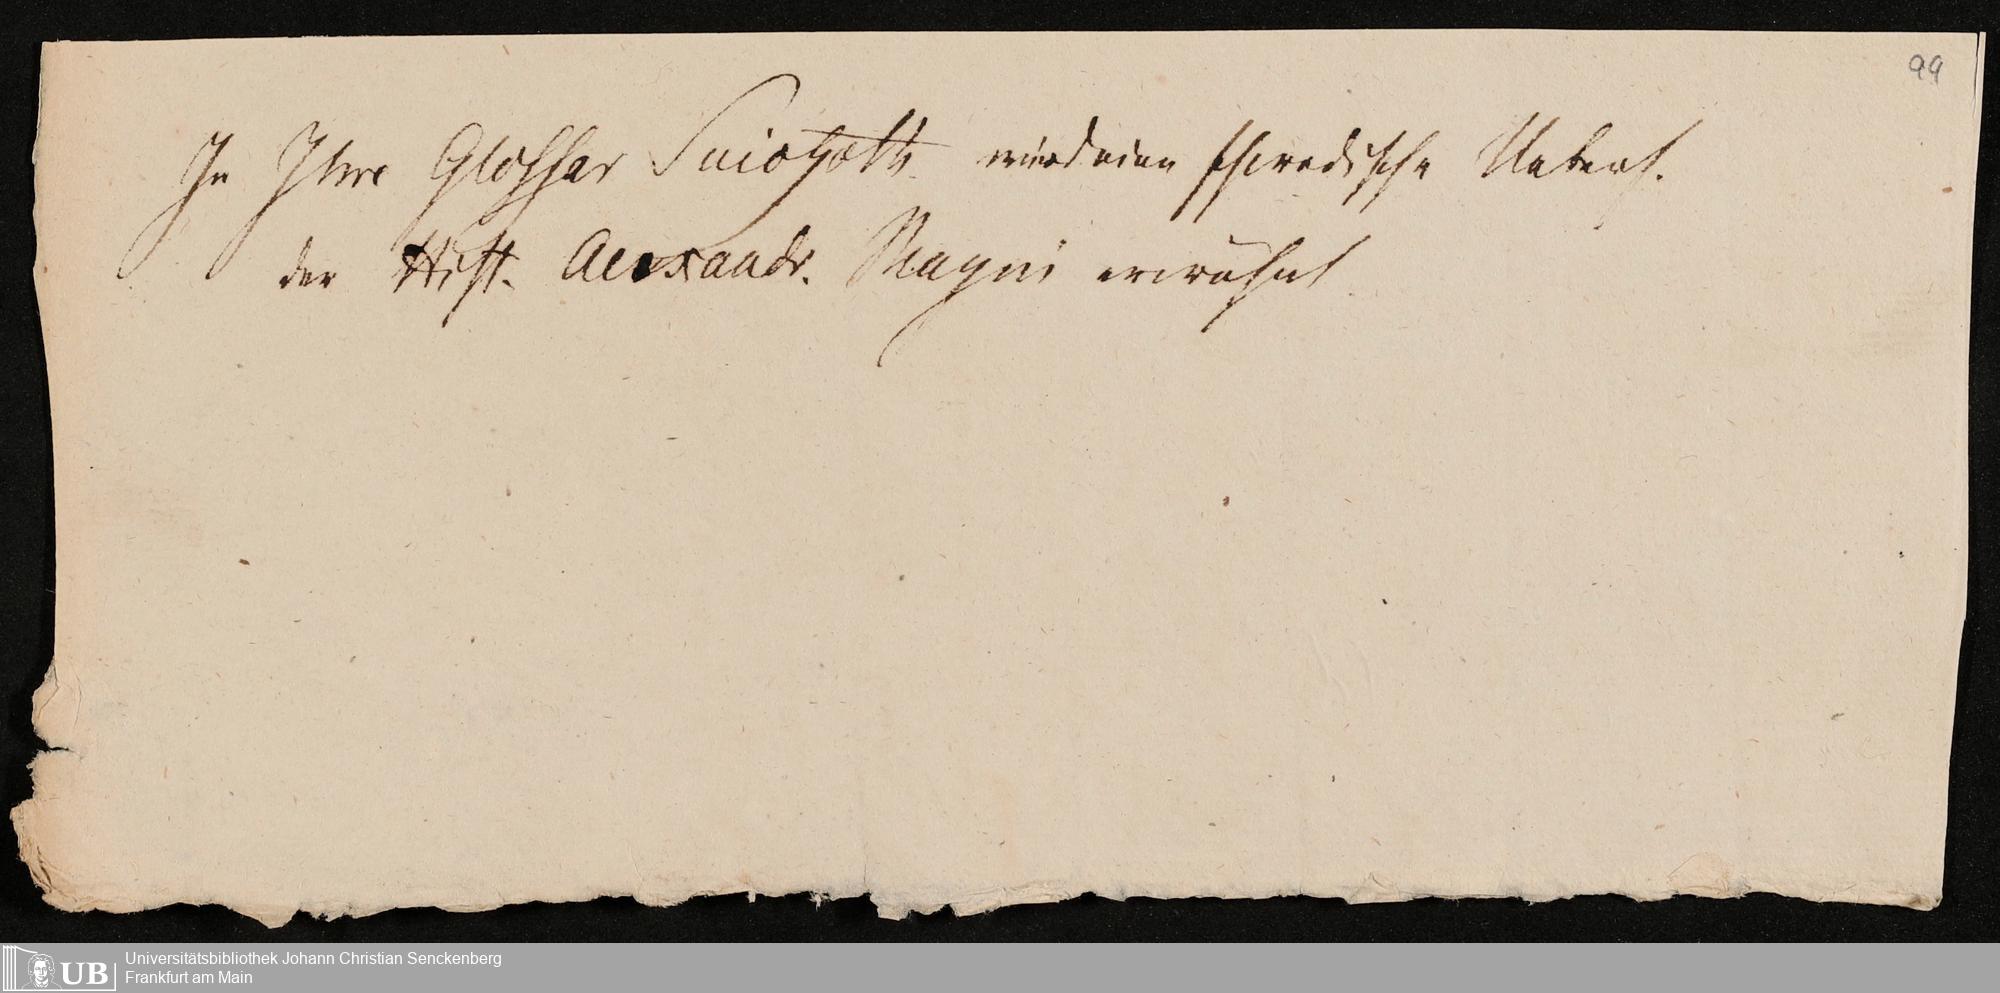 99
In Ihre Glossar Suiogoth. wird eine schwedische Uebers.
der Hist. Alexandr. Magni erwähnt
UB
Universitätsbibliothek Johann Christian Senckenberg
Frankfurt am Main